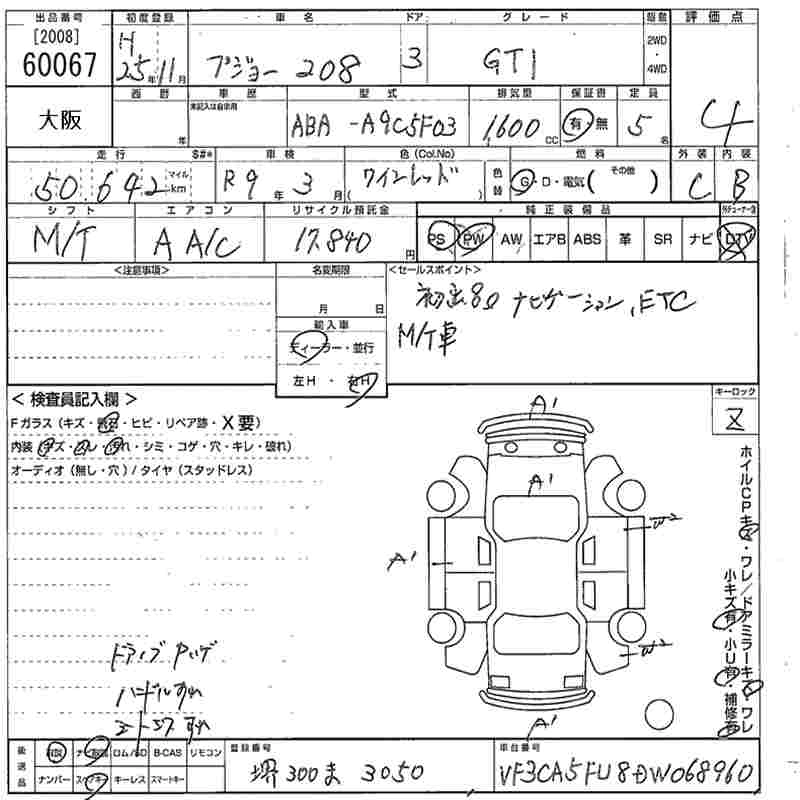 出品番号 初度登録 車名 ドア グレード 駆動 評価点
[2008] H 2WD
60067 25年11月 プジョー 208 3 GTI ・4WD
西暦 車歴 型式 排気量 保証書 定員
大阪 年 未記入は自家用 ABA-A9C5F03 1,600cc 有・無 5名 4
走行 S#* 車検 色(Col.No) 燃料 外装 内装
50,642 マイル km R9年3月 ワインレッド ( ) 色替 G・D・電気( その他 ) C B
シフト エアコン リサイクル預託金 純正装備品
M/T AA/C 17,840円 PS PW AW エアB ABS 革 SR ナビ DTV
<注意事項> 名変期限 <セールスポイント>
月 日 ナビゲーション、ETC
輸入車 M/T車
ディーラー・並行
左H・右H
< 検査員記入欄 > キーロック
Fガラス(キズ・飛石・ヒビ・リペア跡・X要) 又
内装(キズ・ヨゴレ・スレ・シミ・コゲ・穴・キレ・破れ)
オーディオ(無し・穴)/タイヤ(スタッドレス)
A1
A1
W2
A1
W2
A1
ホイルCPキズ・ワレ/ドアミラーキズ・ワレ
小キズ有・小U有・補修有
ハンドルすれ
後送品 ナビ取説 ロム/SD B-CAS リモコン 登録番号 車台番号
ナンバー スペアキー キーレス スマートキー 堺 300 ま 3050 VF3CA5FU8DW068960